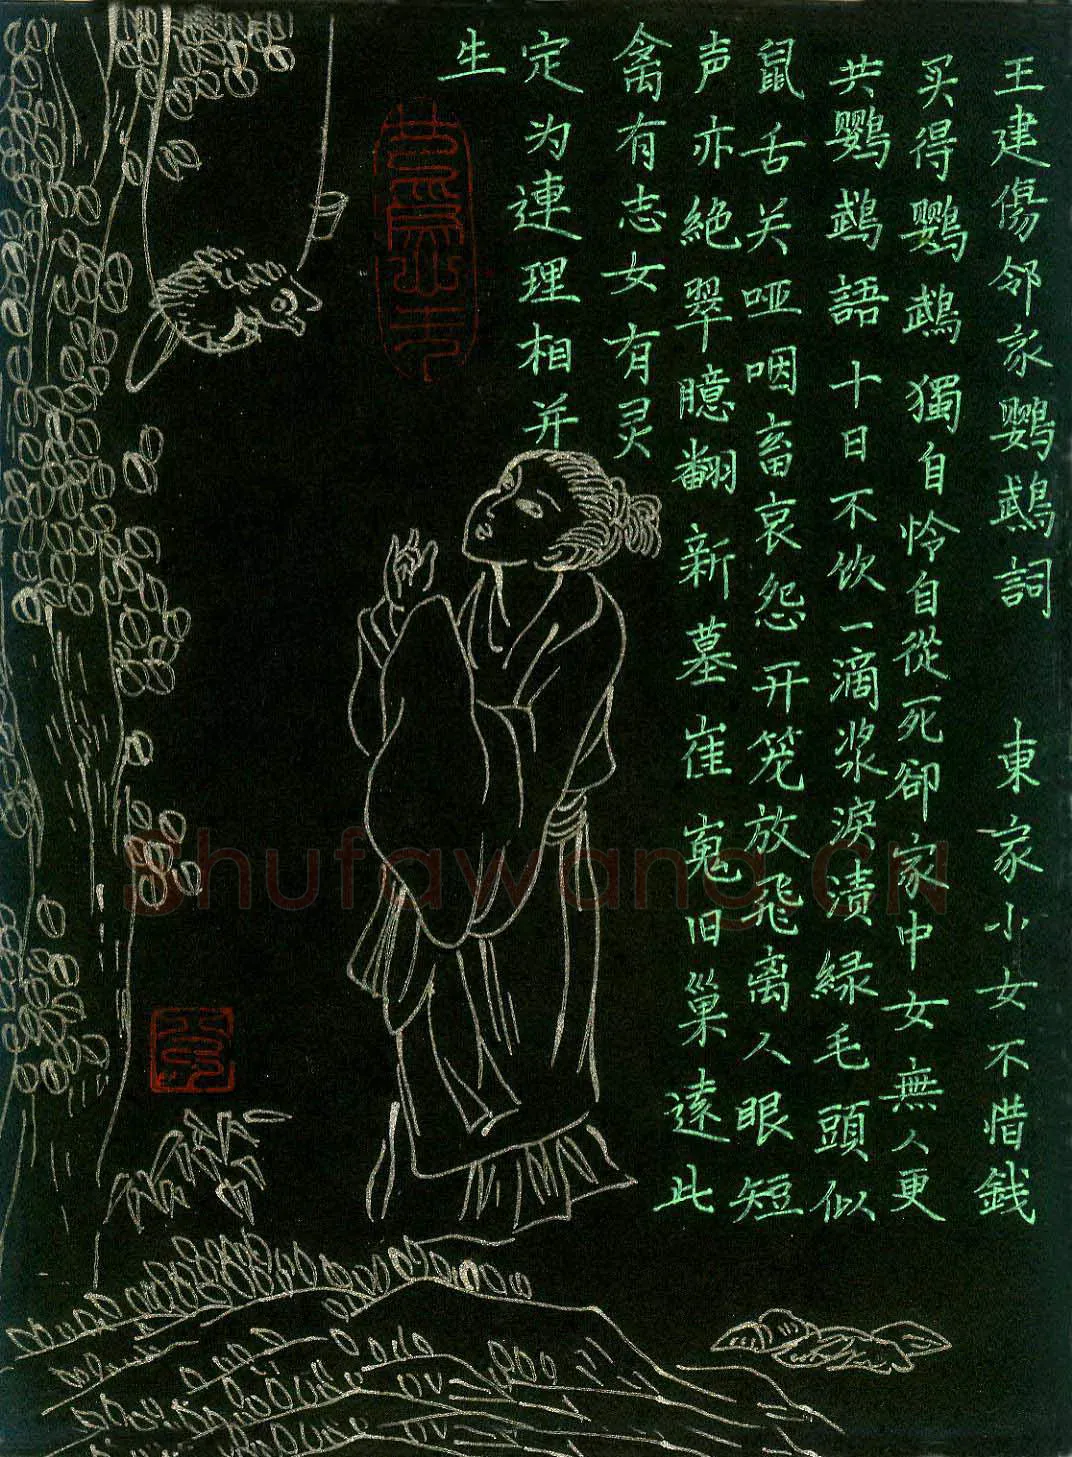 王建傷邻家鹦鹉詞 東家小女不惜銭
买得鹦鹉獨自怜自從死卻家中女無人更
共鹦鹉語十日不饮一滴浆淚渍緑毛頭似
鼠舌关哑咽畜哀怨开笼放飛离人眼短
声亦絶翠臆翻新墓崔嵬旧巢遠此
禽有志女有灵
定为連理相并
生
Shufawang.CN